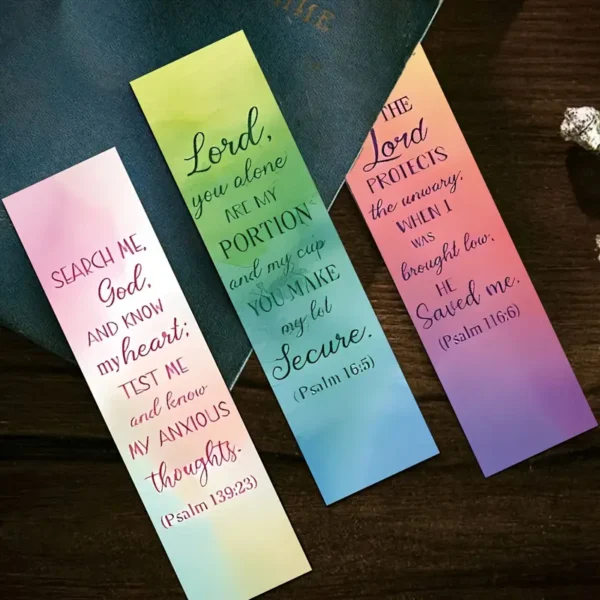 SEARCH ME,
God,
AND KNOW
my heart;
TEST ME
and know
MY ANXIOUS
thoughts.
(Psalm 139:23)
Lord,
you alone
ARE MY
PORTION
and my cup
YOU MAKE
my lot
Secure.
(Psalm 16:5)
THE
Lord
PROTECTS
the unwary,
WHEN I
WAS
brought low,
HE
Saved me.
(Psalm 116:6)